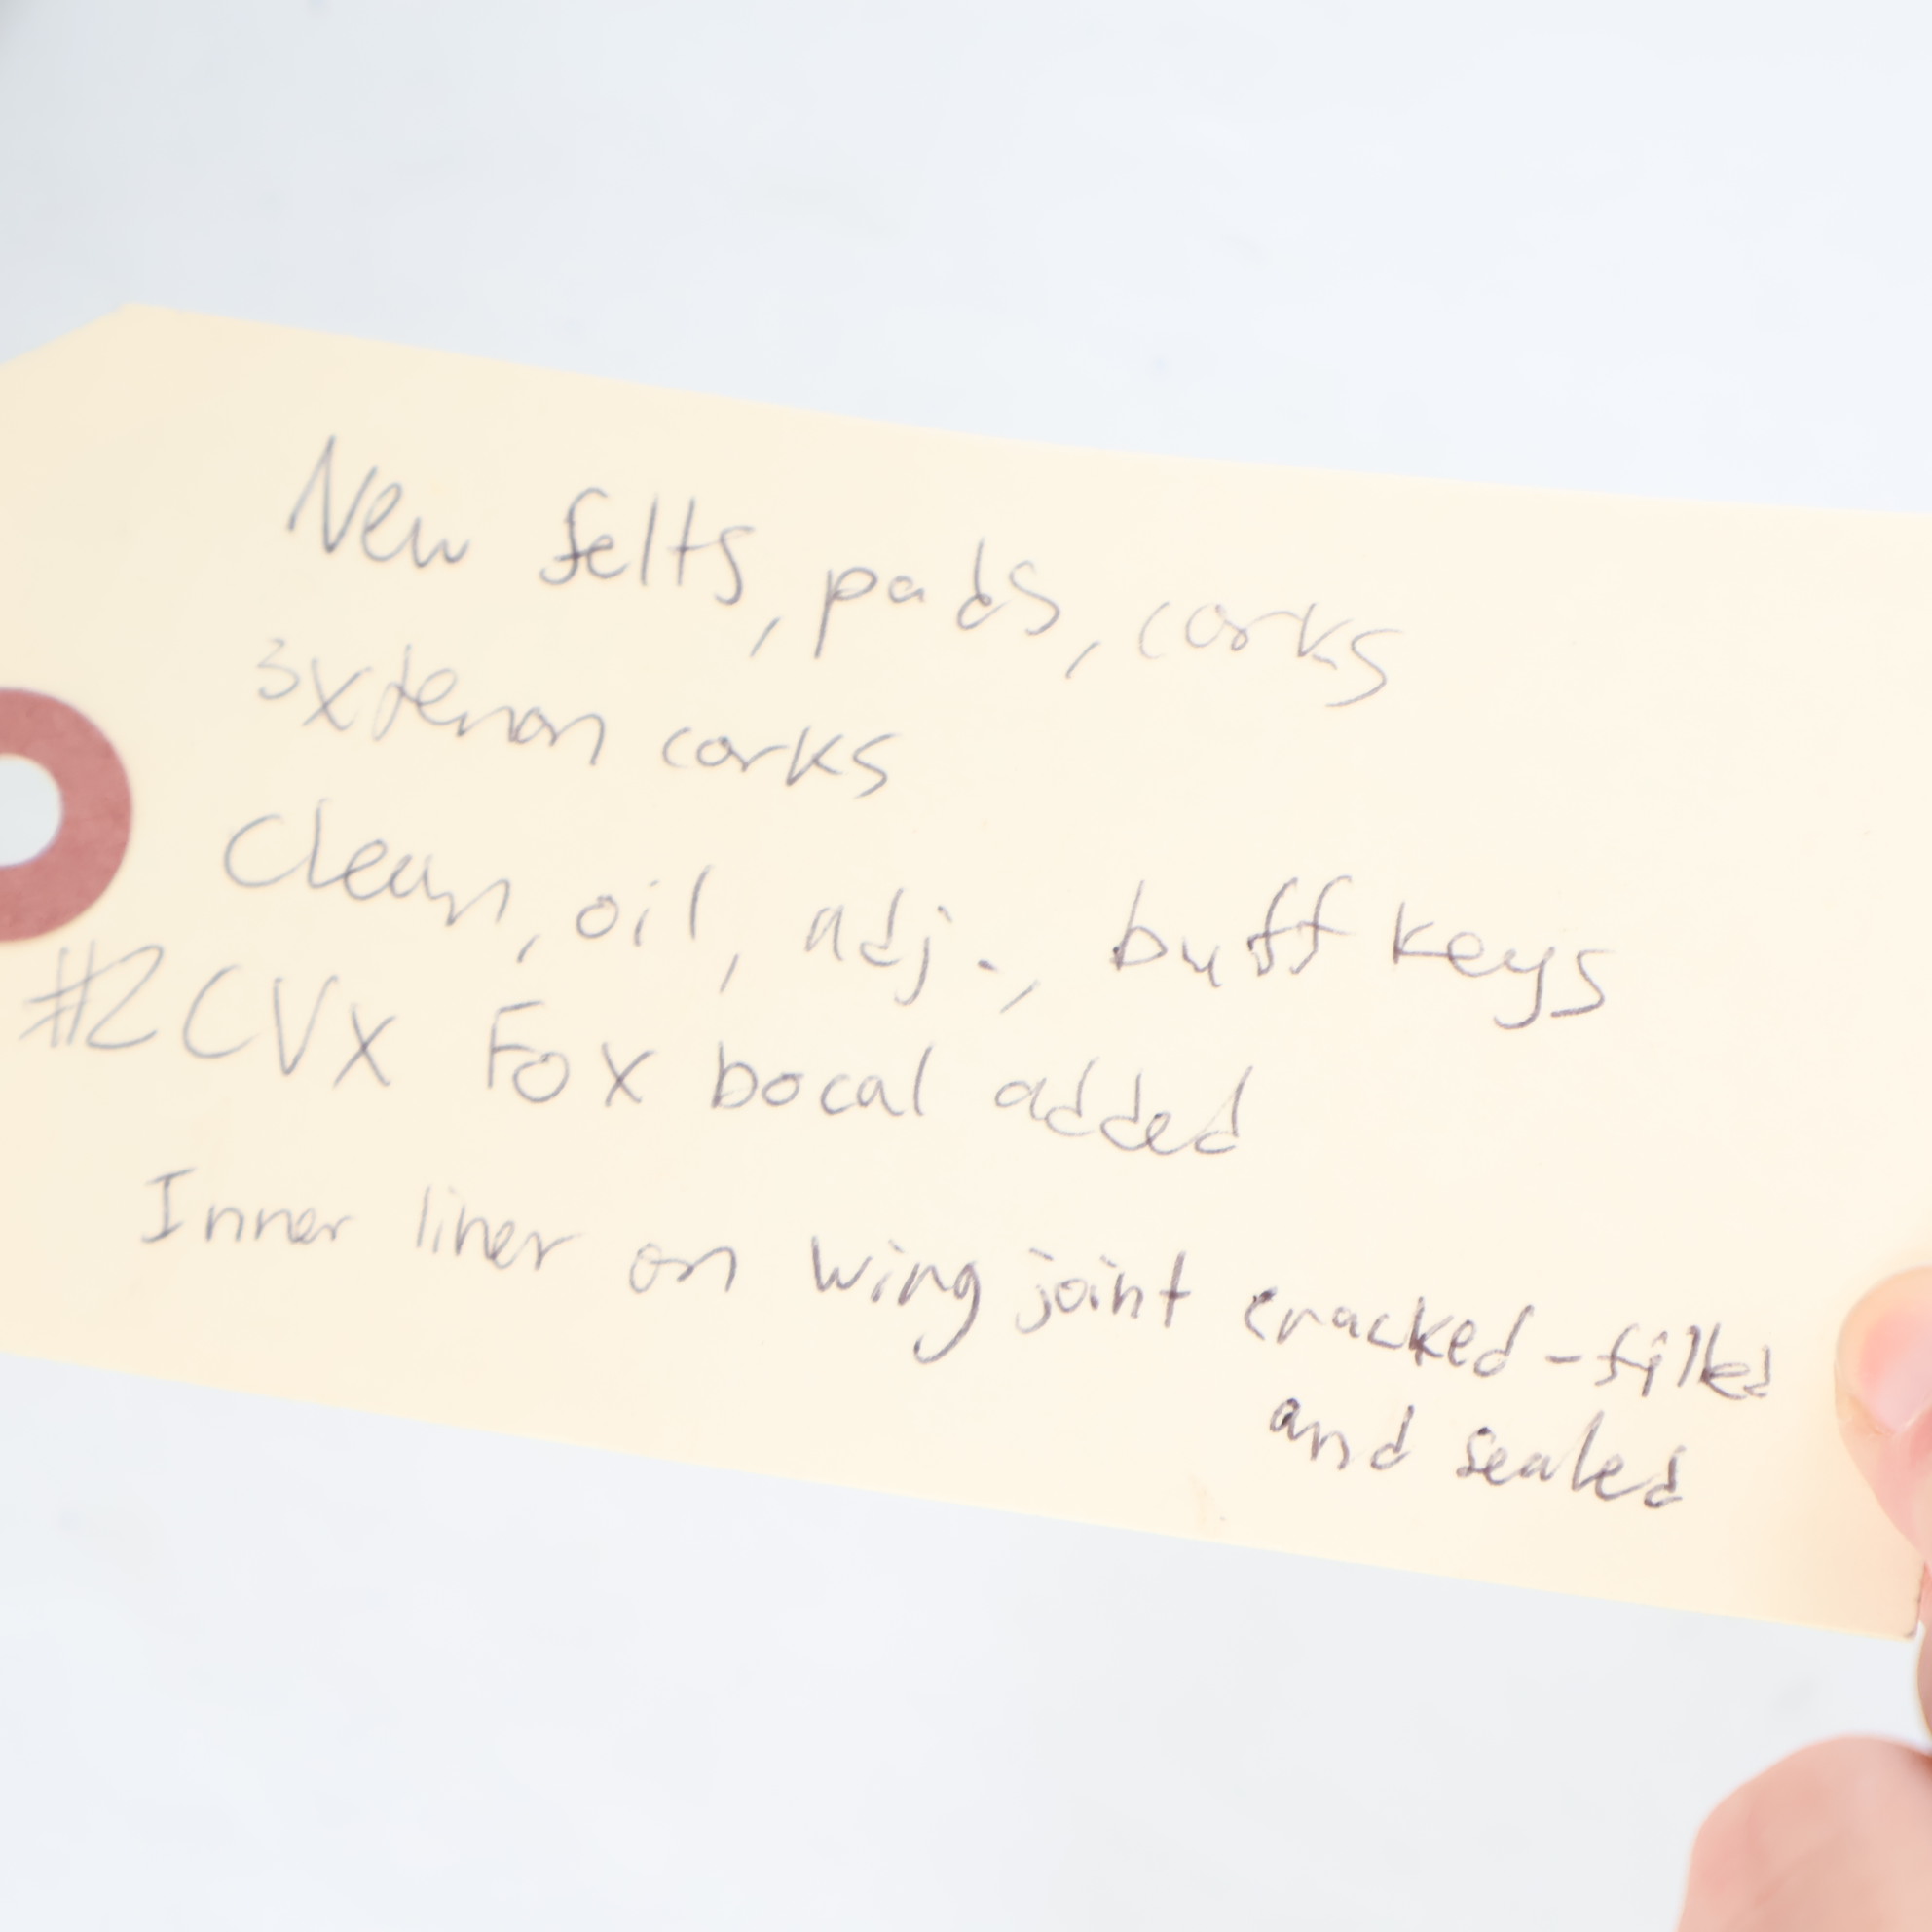 New felts, pads, corks
3x tenon corks
Clean, oil, adj., buff keys
#2 CVX Fox bocal added
Inner liner on wing joint cracked - filled
and sealed